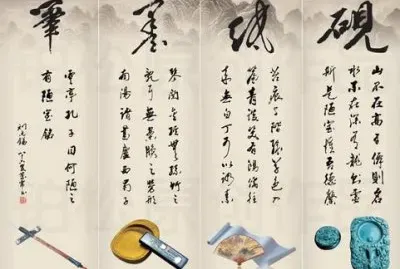 硯
山不在高有仙則名
水不在深有龍則靈
斯是陋室惟吾德馨
纸
苔痕上階綠草色入
簾青談笑有鴻儒往
來無白丁可以調素
墨
琴閱金經無絲竹之
亂耳無案牘之勞形
南陽諸葛廬西蜀子
筆
雲亭孔子曰何陋之
有陋室銘
劉禹錫